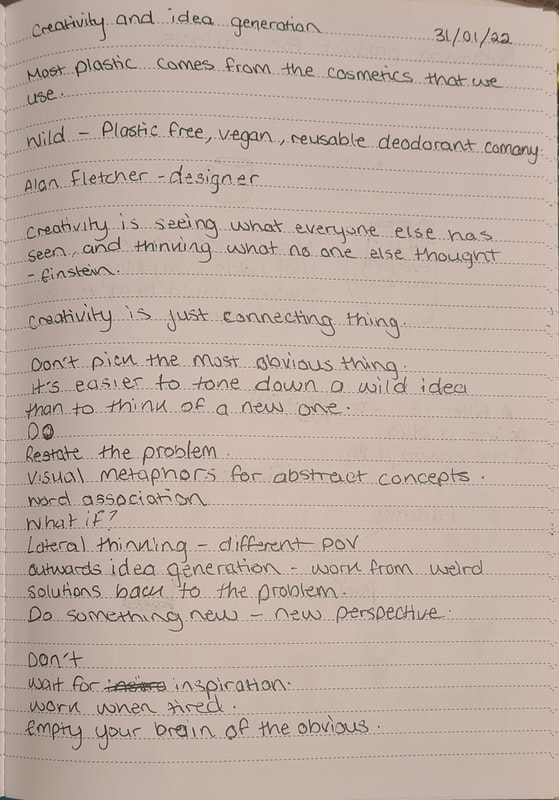 Creativity and idea generation 31/01/22
Most plastic comes from the cosmetics that we
use.
Wild - Plastic free, vegan, reusable deodorant comany.
Alan Fletcher - designer
Creativity is seeing what everyone else has
seen, and thinking what no one else thought
- Einstein.
Creativity is just connecting thing.
Don't pick the most obvious thing.
It's easier to tone down a wild idea
than to think of a new one.
DO
Restate the problem.
Visual metaphors for abstract concepts.
Word association
What if?
Lateral thinking - different POV
outwards idea generation - work from weird
solutions back to the problem.
Do something new - new perspective.
Don't
wait for inspiration.
work when tired.
Empty your brain of the obvious.